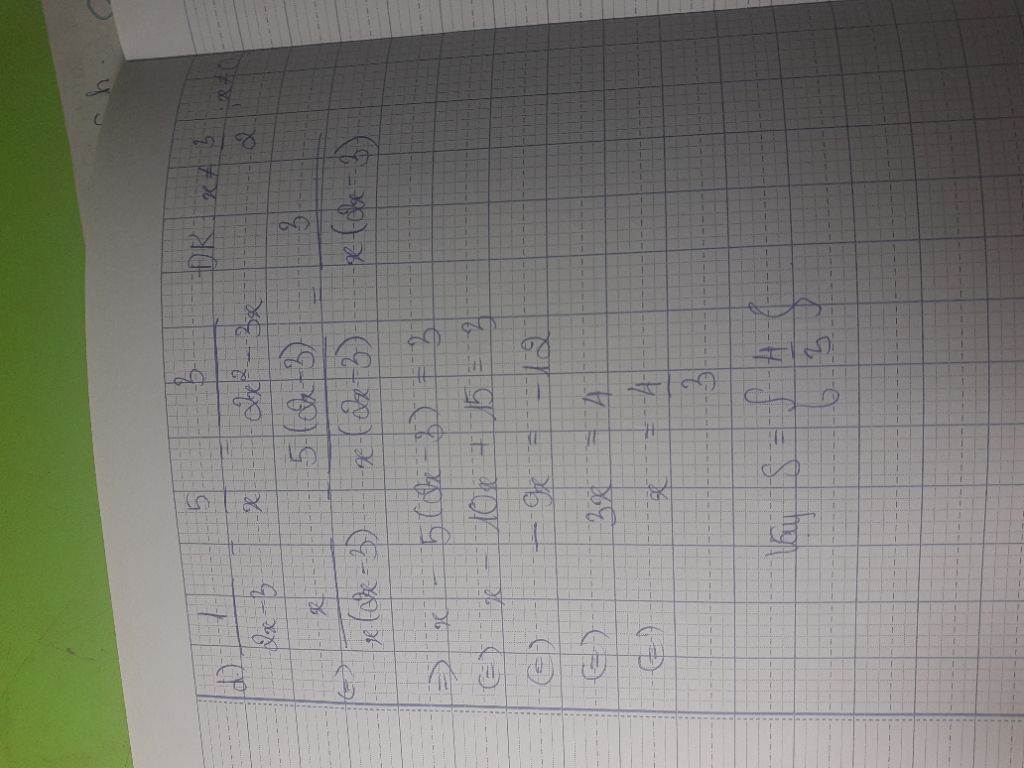 d) 1/(2x-3) - 5/x = 3/(2x² - 3x) ĐK x ≠ 3/2, x ≠ 0
(=) x/(x(2x-3)) - 5(2x-3)/(x(2x-3)) = 3/(x(2x-3))
=) x - 5(2x-3) = 3
(=) x - 10x + 15 = 3
(=) -9x = -12
(=) 3x = 4
(=) x = 4/3
Vậy S = { 4/3 }